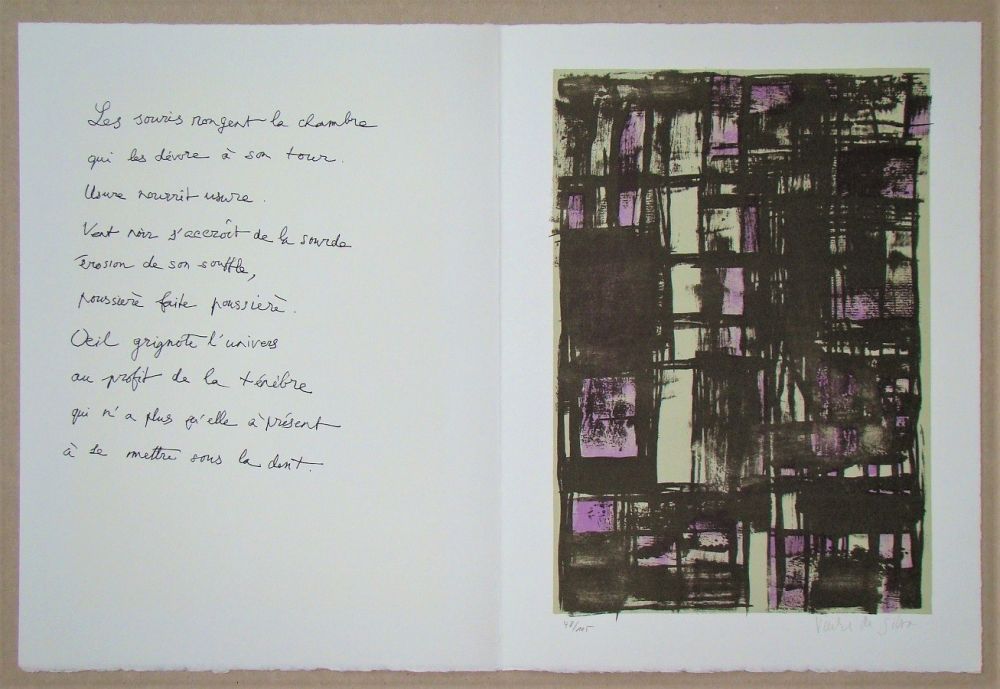 Les souris rongent la chambre
qui les dévore à son tour.
Usure nourrit usure.
Vent noir s'accroît de la sourde
érosion de son souffle,
poussière faite poussière.
Oeil grignote l'univers
au profit de la ténèbre
qui n'a plus qu'elle à présent
à se mettre sous la dent.
48/105
Vieira da Silva